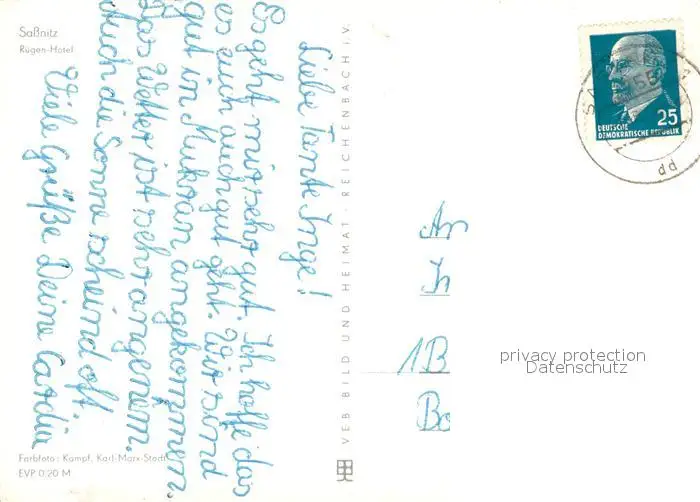 Saßnitz
Rügen-Hotel
Liebe Tante Inge!
Es geht mir sehr gut. Ich hoffe das
es auch auch gut geht. Wir sind
gut in Mukran angekommen.
Das Wetter ist sehr angenem.
Auch die Sonne scheind oft.
Viele Grüße Deine
Farbfoto: Kampf, Karl-Marx-Stadt
EVP 0,20 M
VEB BILD UND HEIMAT · REICHENBACH i. V.
25
DEUTSCHE
DEMOKRATISCHE REPUBLIK
dd
An
1B
privacy protection
Datenschutz